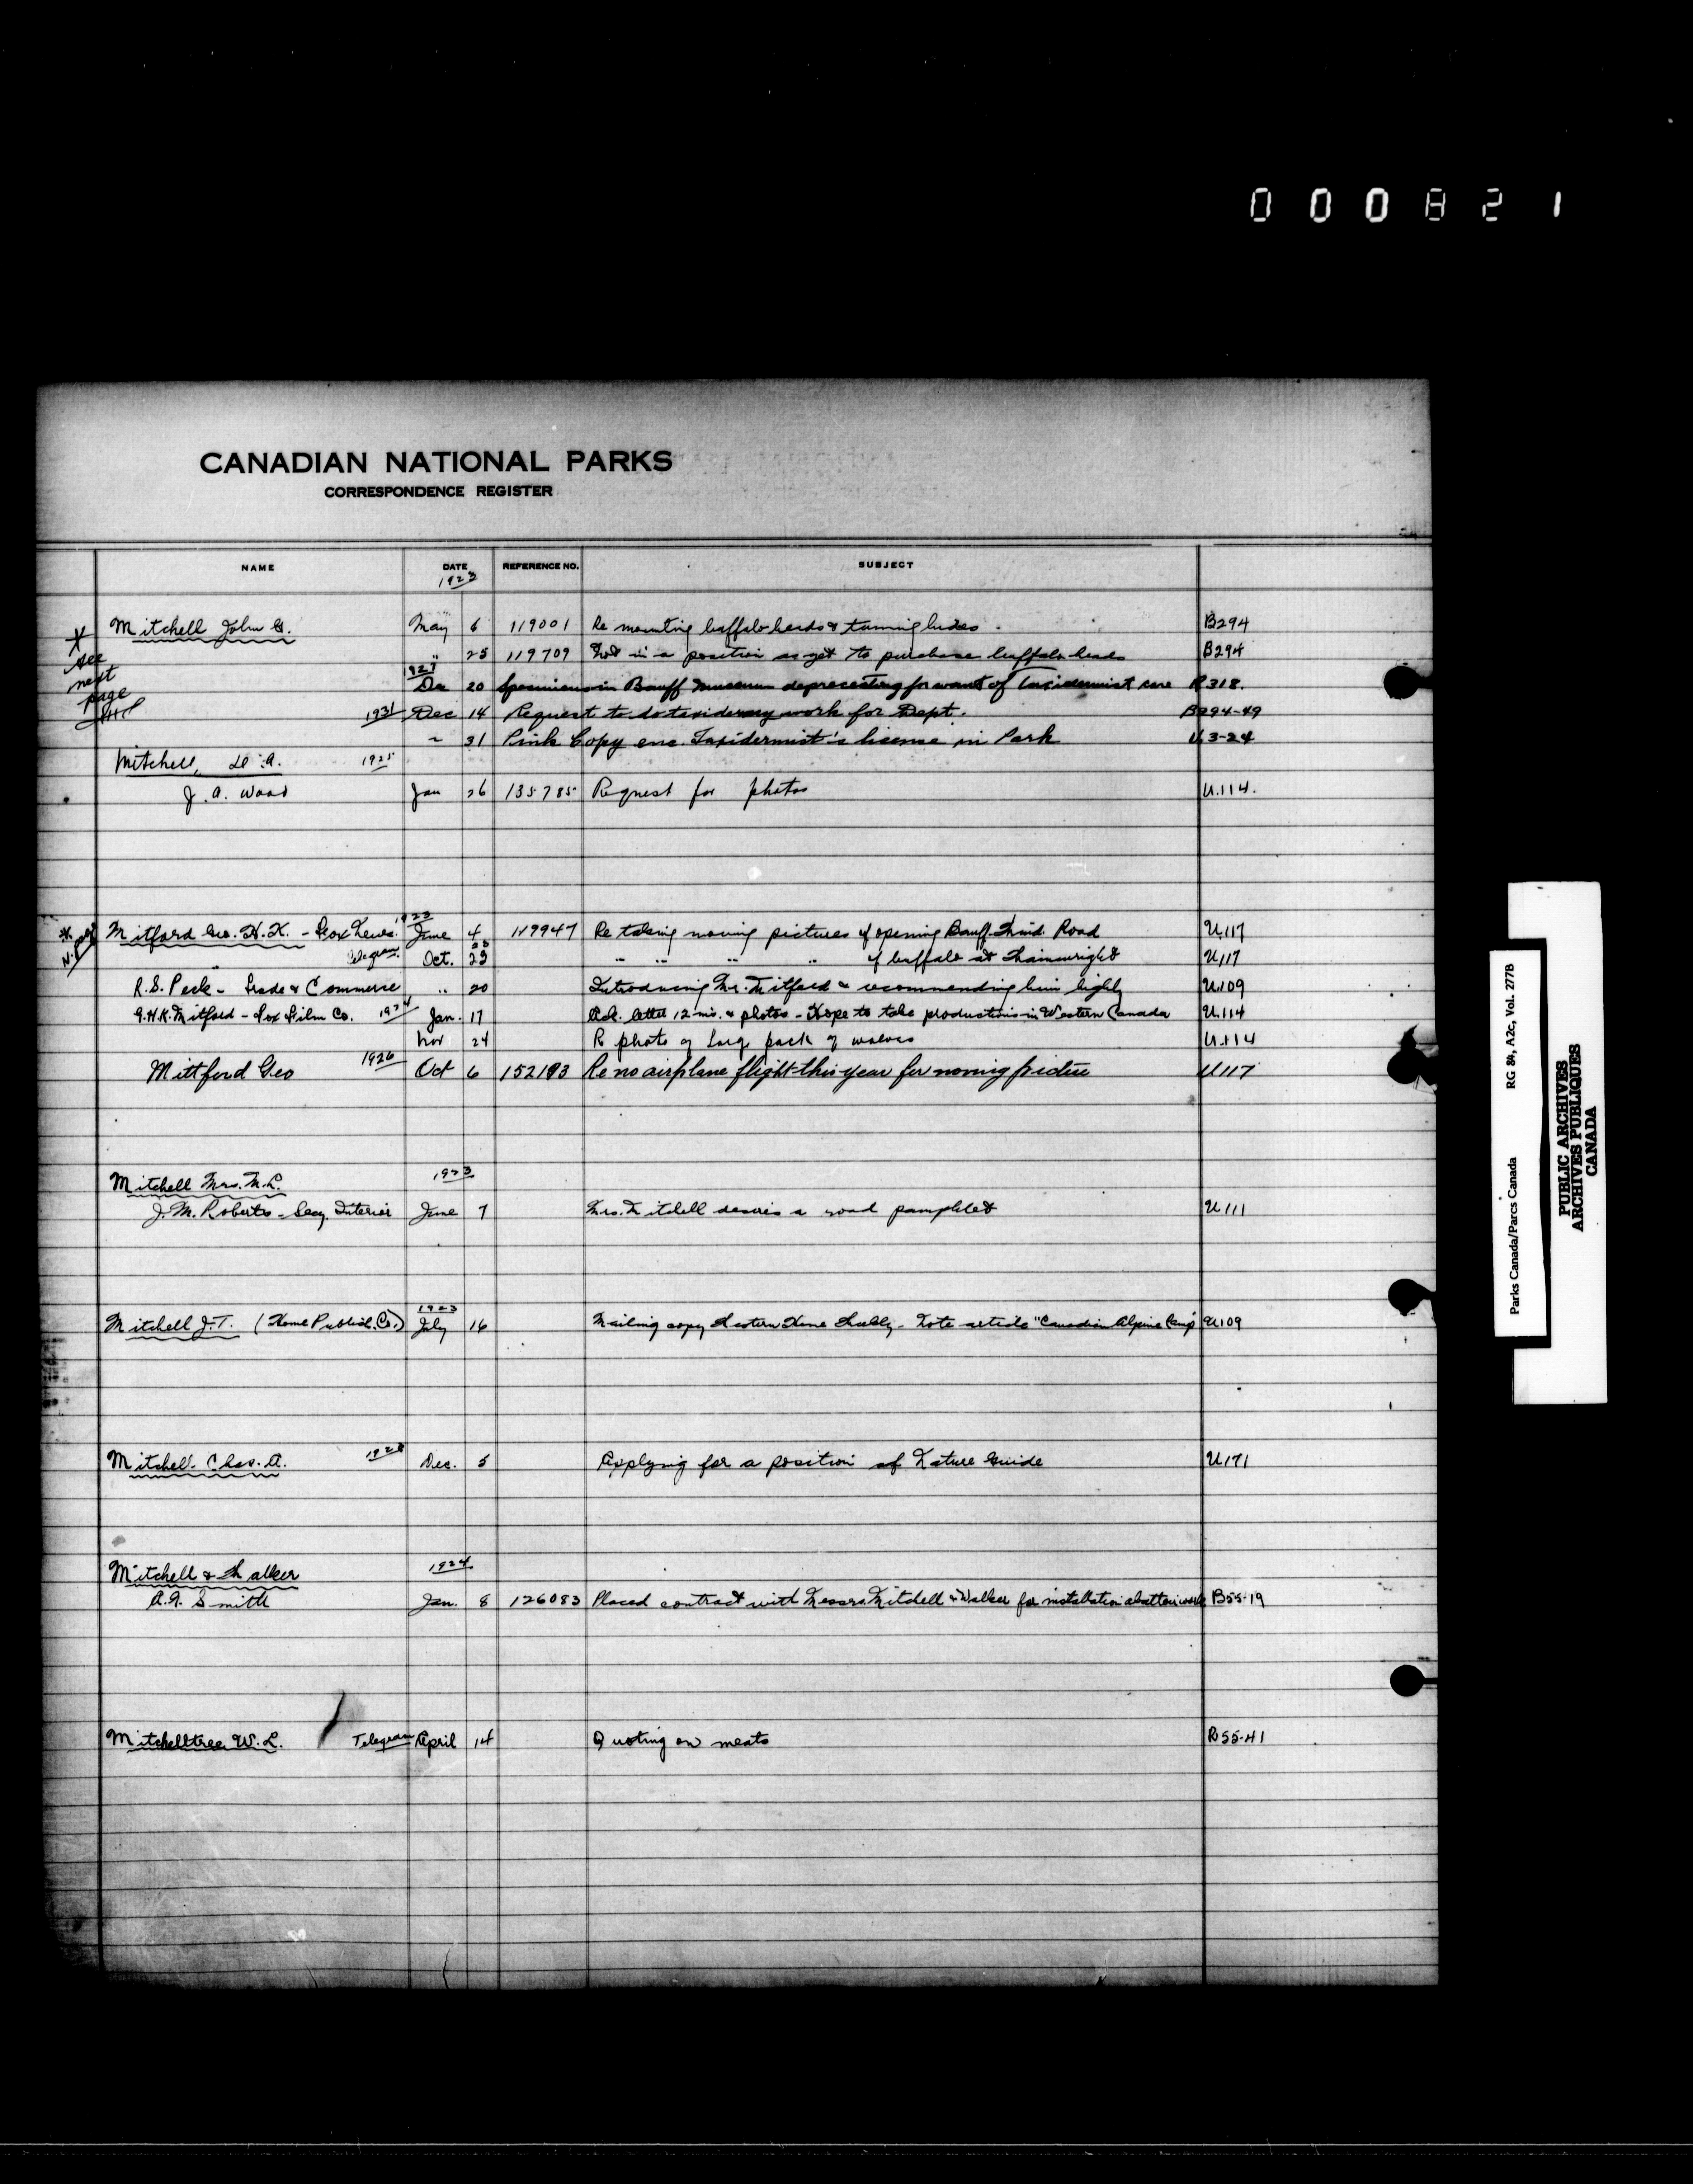 000821
CANADIAN NATIONAL PARKS
CORRESPONDENCE REGISTER
NAME DATE REFERENCE NO. SUBJECT
1923
Mitchell John G. May 6 119001 Re mounting buffalo heads & tanning hides. B294
* see next page
" 25 119709 Not in a position as yet to purchase buffalo heads B294
1927 Dec 20 Specimens in Banff Museum depreciating for want of taxidermist care R318.
1931 Dec 14 Request to do taxidermy work for Dept. B294-49
" 31 Pink Copy enc. Taxidermist's license in Park U3-24
Mitchell, A. 1925
J. A. Wood Jan 26 135785 Request for photos U.114.
* N. page
Mitford Geo. H.K. - Fox News. 1923 June 4 119947 Re taking moving pictures of opening Banff-Wind. Road U.117
" Telegram. Oct. 23 " " " " of buffalo at Wainwright U117
R.S. Peck - Trade & Commerce " 20 Introducing Mr. Mitford & recommending him highly U.109
G.H.K. Mitford - Fox Film Co. 1924 Jan. 17 Ack. letter 12 ins. & photos - Hope to take productions in Western Canada U.114
Nov 24 R photo of large pack of wolves U.114
Mittford Geo 1926 Oct 6 152193 Re no airplane flight this year for moving picture U117
Mitchell Mrs. M.L. 1923
J.M. Roberts - Secy. Interior June 7 Mrs. Mitchell desires a road pamphlet U111
1923
Mitchell J.T. (Home Publish. Co.) July 16 Mailing copy Western Home Monthly - Note article "Canadian Alpine Camp" U109
Mitchell Chas. A. 1928 Dec. 5 Applying for a position of Nature Guide U171
Mitchell & Walker 1924
A.G. Smith Jan. 8 126083 Placed contract with Messrs. Mitchell & Walker for installation abattoir work B55-19
Mitchelltree W.L. Telegram April 14 Quoting on meats B55-41
Parks Canada/Parcs Canada RG 84, A2c, Vol. 277B
PUBLIC ARCHIVES
ARCHIVES PUBLIQUES
CANADA